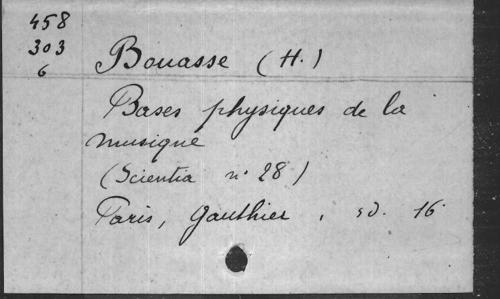 458
303
6
Bouasse (H.)
Bases physiques de la
musique
(Scientia n° 28)
Paris, Gauthier, sd. 16